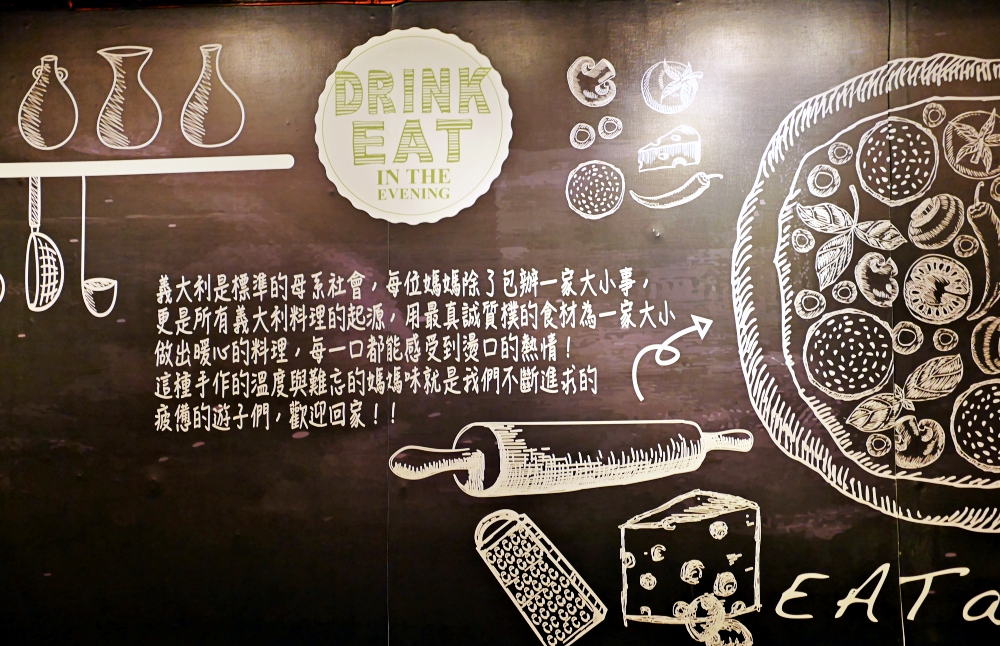 DRINK
EAT
IN THE
EVENING
義大利是標準的母系社會，每位媽媽除了包辦一家大小事，
更是所有義大利料理的起源，用最真誠質樸的食材為一家大小
做出暖心的料理，每一口都能感受到燙口的熱情！
這種手作的溫度與難忘的媽媽味就是我們不斷進求的
疲憊的遊子們，歡迎回家！！
EAT a